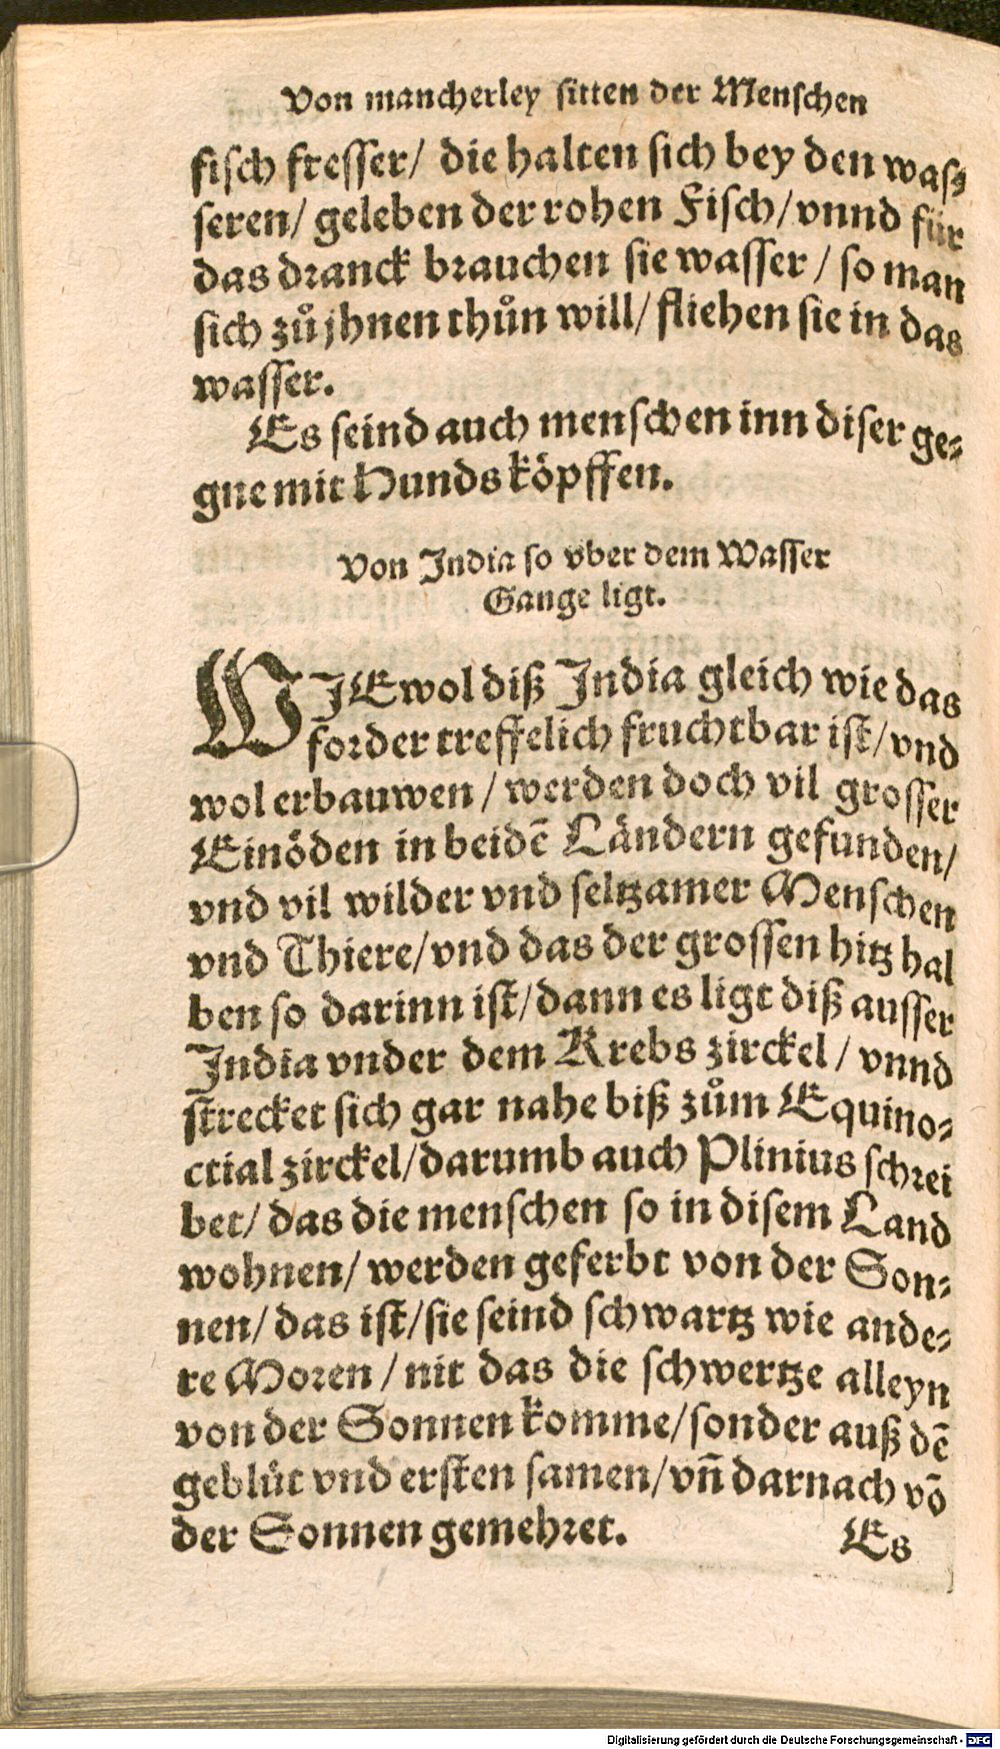 Von mancherley sitten der Menschen
fisch fresser/ die halten sich bey den was⸗
seren/ geleben der rohen Fisch/ vnnd für
das dranck brauchen sie wasser / so man
sich zůjhnen thůn will/ fliehen sie in das
wasser.
Es seind auch menschen inn diser ge⸗
gne mit Hunds köpffen.
Von India so vber dem Wasser
Gange ligt.
WIEwol diß India gleich wie das
forder treffelich fruchtbar ist/ vnd
wol erbauwen / werden doch vil grosser
Einöden in beidē Ländern gefunden/
vnd vil wilder vnd seltzamer Menschen
vnd Thiere/ vnd das der grossen hitz hal
ben so darinn ist/ dann es ligt diß ausser
India vnder dem Krebs zirckel / vnnd
strecket sich gar nahe biß zům Equino⸗
ctial zirckel/ darumb auch Plinius schrei
bet/ das die menschen so in disem Land
wohnen/ werden geferbt von der Son⸗
nen/ das ist/ sie seind schwartz wie ande⸗
re Moren / nit das die schwertze alleyn
von der Sonnen komme/ sonder auß dē
geblüt vnd ersten samen/ vñ darnach võ
der Sonnen gemehret.
Es
Digitalisierung gefördert durch die Deutsche Forschungsgemeinschaft - DFG